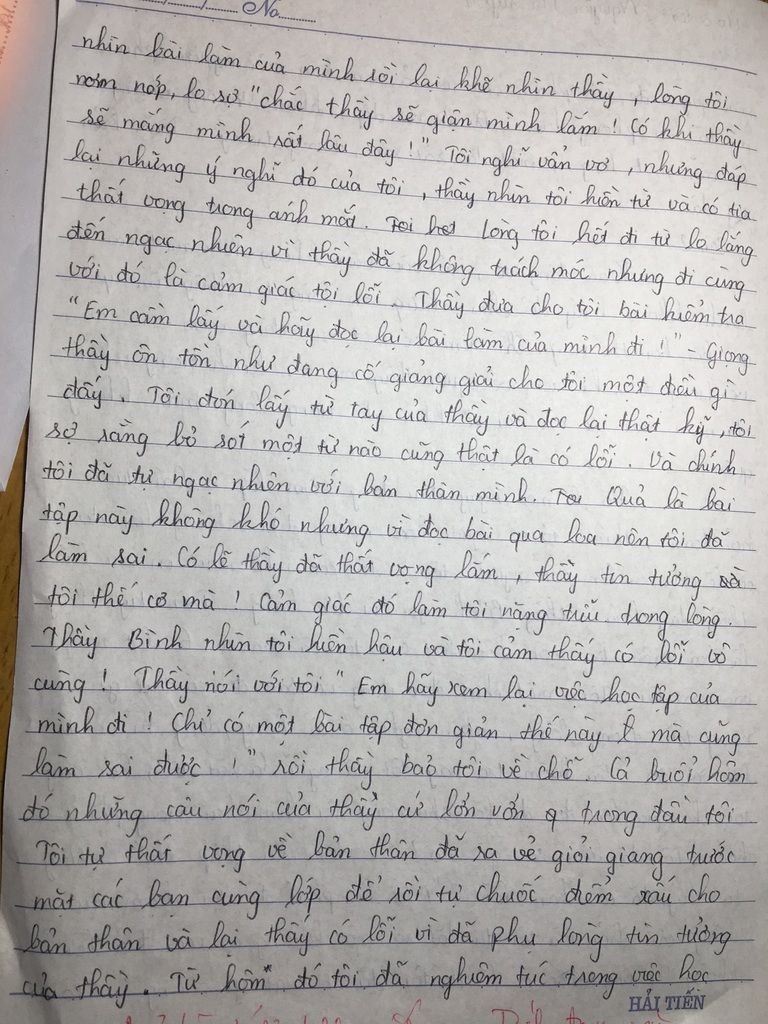 No
nhìn bài làm của mình rồi lại khẽ nhìn thầy, lòng tôi
nơm nớp, lo sợ "chắc thầy sẽ giận mình lắm! Có khi thầy
sẽ mắng mình rất lâu đây!" Tôi nghĩ vẩn vơ, nhưng đáp
lại những ý nghĩ đó của tôi, thầy nhìn tôi hiền từ và có tia
thất vọng trong ánh mắt. Lòng tôi hết đi từ lo lắng
đến ngạc nhiên vì thầy đã không trách móc nhưng đi cùng
với đó là cảm giác tội lỗi. Thầy đưa cho tôi bài kiểm tra
"Em cầm lấy và hãy đọc lại bài làm của mình đi!" - Giọng
thầy ôn tồn như đang cố giảng giải cho tôi một điều gì
đấy. Tôi đón lấy từ tay của thầy và đọc lại thật kỹ, tôi
sợ rằng bỏ sót một từ nào cũng thật là có lỗi. Và chính
tôi đã tự ngạc nhiên với bản thân mình. Quả là bài
tập này không khó nhưng vì đọc bài qua loa nên tôi đã
làm sai. Có lẽ thầy đã thất vọng lắm, thầy tin tưởng
tôi thế cơ mà! Cảm giác đó làm tôi nặng trĩu trong lòng.
Thầy Bình nhìn tôi hiền hậu và tôi cảm thấy có lỗi vô
cùng! Thầy nói với tôi "Em hãy xem lại việc học tập của
mình đi! Chỉ có một bài tập đơn giản thế này mà cũng
làm sai được!" rồi thầy bảo tôi về chỗ. Cả buổi hôm
đó những câu nói của thầy cứ lởn vởn trong đầu tôi
Tôi tự thất vọng về bản thân đã ra vẻ giỏi giang trước
mặt các bạn cùng lớp để rồi tự chuốc điểm xấu cho
bản thân và lại thấy có lỗi vì đã phụ lòng tin tưởng
của thầy. Từ hôm đó tôi đã nghiêm túc trong việc học
HẢI TIẾN